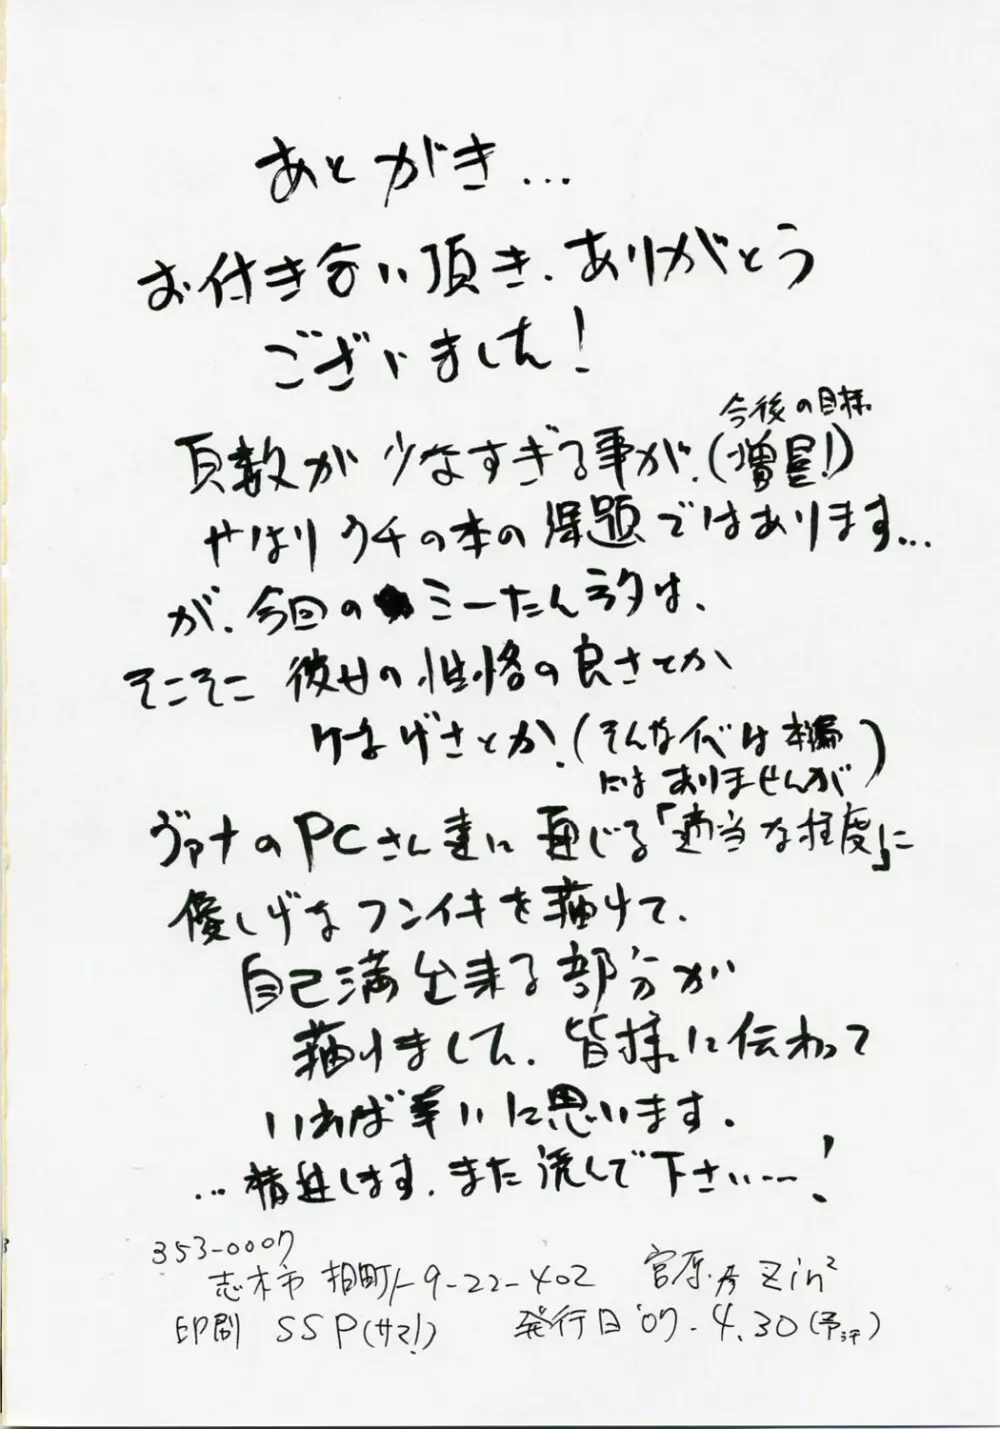 あとがき…
お付き合い頂き、ありがとう
ございました!
今後の目標
頁数が少なすぎる事が、(増量!)
やはりウチの本の課題ではあります…
が、今回のミーたんネタは、
そこそこ彼女の性格の良さとか
けなげさとか、(そんなイベは本編
にはありませんが)
ヴァナのPCさん達に通じる「適当な程度」に
優しげなフンイキを描けて、
自己満出来る部分が
描けました、皆様に伝わって
いれば幸いに思います。
…精進します、また読んで下さい……!
353-0007
志木市 柏町1-9-22-402 宮原 歩 Zin²
印刷 SSP(サマ!) 発行日'07.4.30(予定)